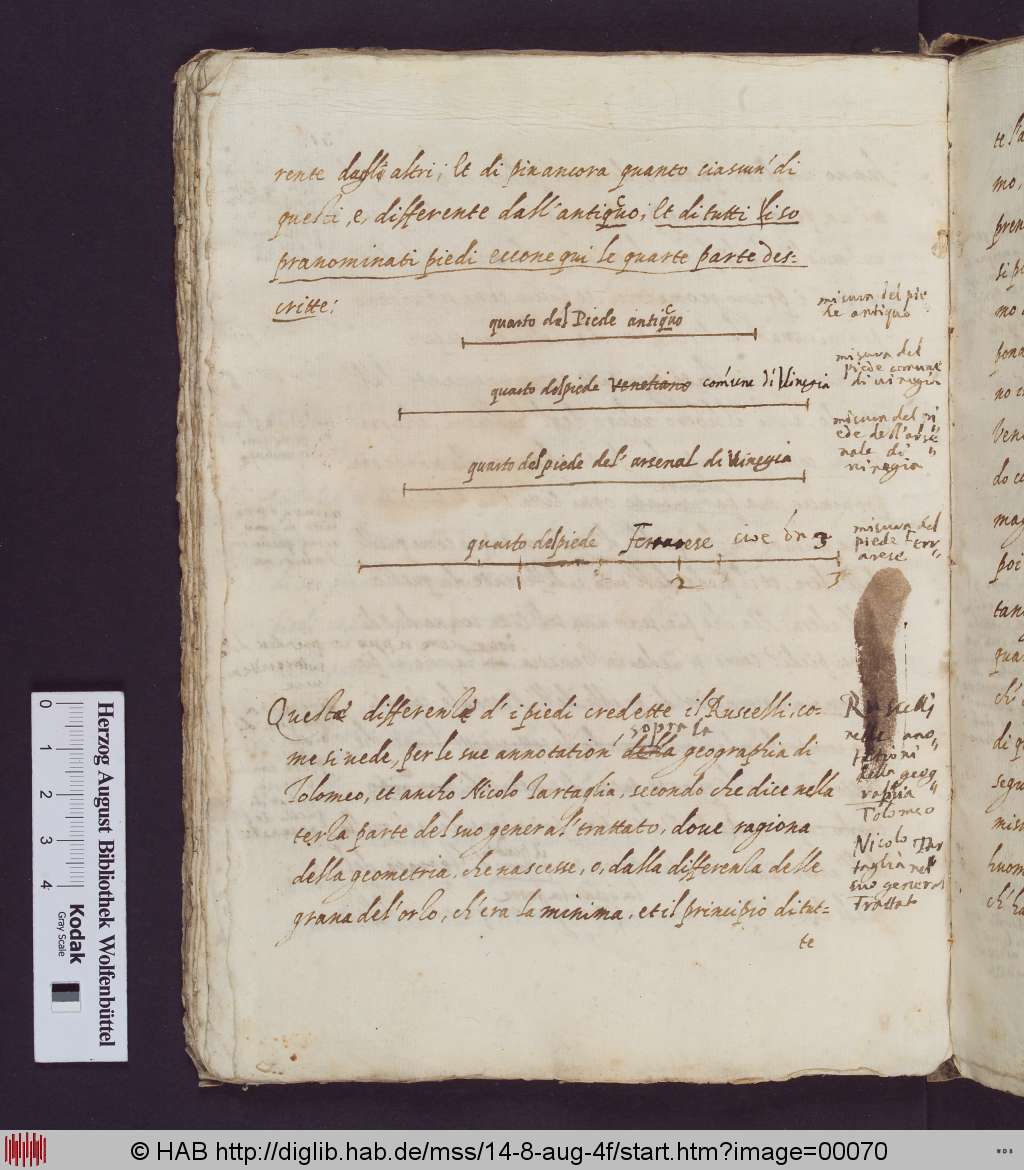 rente dagli altri; et di piu ancora quanto ciascun' di
questi, e, differente dall'antiquo; et di tutti li so
pranominati piedi eccone qui le quarte parte des=
critte:
misura del pie
de antiquo
quarto del Piede antiquo
misura del
piede comune
di vinegia
quarto del piede venetiano comune di Vinegia
misura del pi
ede dell'arse
nale di
vinegia
quarto del piede del' arsenal di Vinegia
misura del
piede ferr
arese
quarto del piede Ferrarese cioe on 3
1 2 3
Queste differentie d' i piedi credette il Ruscelli, co-
me si vede, per le sue annotationi della sopra la geographia di
Tolomeo, et ancho Nicolo Tartaglia, secondo che dice nella
terza parte del suo general' trattato, doue ragiona
della geometria, che nascesse, o, dalla differenza delle
grana del'orzo, ch'era la minima, et il principio di tut=
te
Ruscelli
nelle ano
tationi
della geog
raphia
Tolomeo
Nicolo Tar
taglia nel
suo general
Trattat
te l'a
mo,
pren
si p
mo
no
Ven
do co
mag
poi
tan
qua
ch'
di q
segu
mis
huom
ch'ha
0 1 2 3 4
Kodak
Gray Scale
Herzog August Bibliothek Wolfenbüttel
© HAB http://diglib.hab.de/mss/14-8-aug-4f/start.htm?image=00070